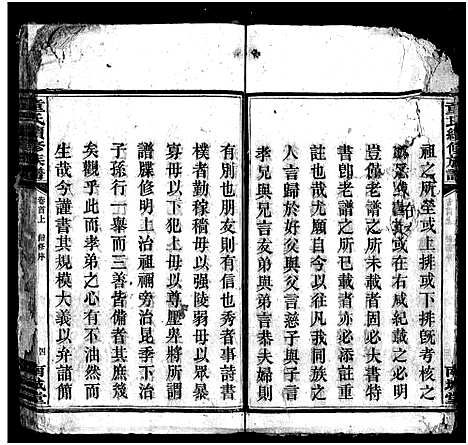 祖之所塋或上排或下排旣考核之
冠或右咸紀載之不必
豈惟老譜之所未載者必大書特
書卽老譜之所已載者亦必添書
註也哉尤願自今以往凡我同族之
人言歸於好父與父言慈子與子言
孝兄與兄言友弟與弟言恭夫婦則
有別言朋友則有信秀者事詩書
樸者勤稼穡毋以强陵弱毋以眾暴
寡毋以下犯上毋以尊壓卑將所謂
譜牒修明上治祖禰旁治昆季下治
子孫行一舉而三善皆備者其庶幾
矣觀乎此而孝弟之心有不油然而
生哉今謹書其規模大義以弁諸簡
童氏續修族譜
卷首上
續修序
四
南城堂